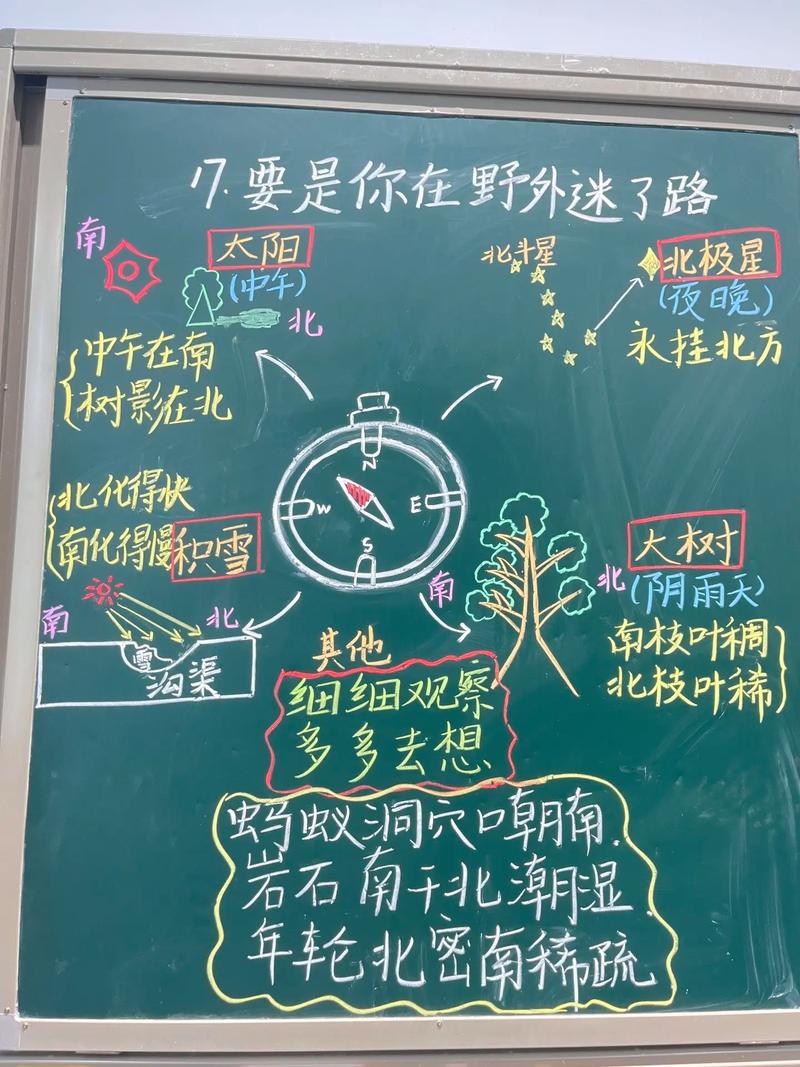 17.要是你在野外迷了路
南
太阳
(中午)
北
中午在南
树影在北
北斗星
北极星
(夜晚)
永挂北方
北化得快
南化得慢
积雪
南
北
雪
沟渠
N
W
E
S
大树
(阴雨天)
南
北
南枝叶稠
北枝叶稀
其他
细细观察
多多去想
蚂蚁洞穴口朝南.
岩石南干北潮湿
年轮北密南稀疏